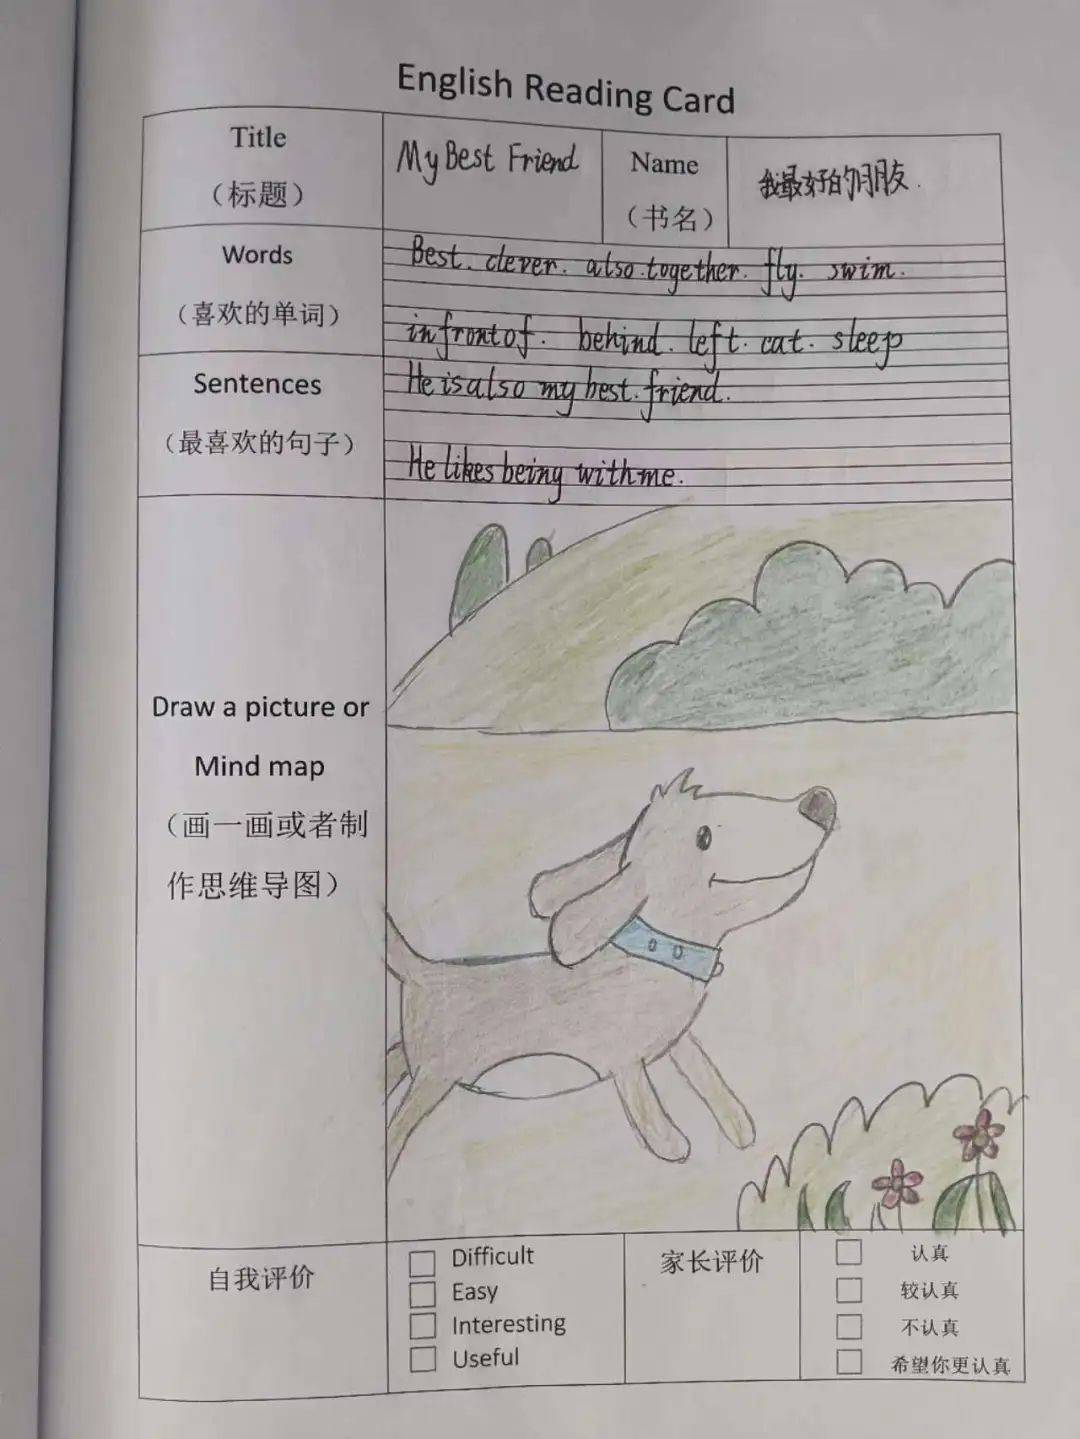 English Reading Card
Title
（标题）
My Best Friend
Name
（书名）
我最好的朋友.
Words
（喜欢的单词）
Best. clever. also. together. fly. swim.
in front of. behind. left. cat. sleep
Sentences
（最喜欢的句子）
He is also my best. friend.
He likes being with me.
Draw a picture or
Mind map
（画一画或者制
作思维导图）
自我评价
Difficult
Easy
Interesting
Useful
家长评价
认真
较认真
不认真
希望你更认真